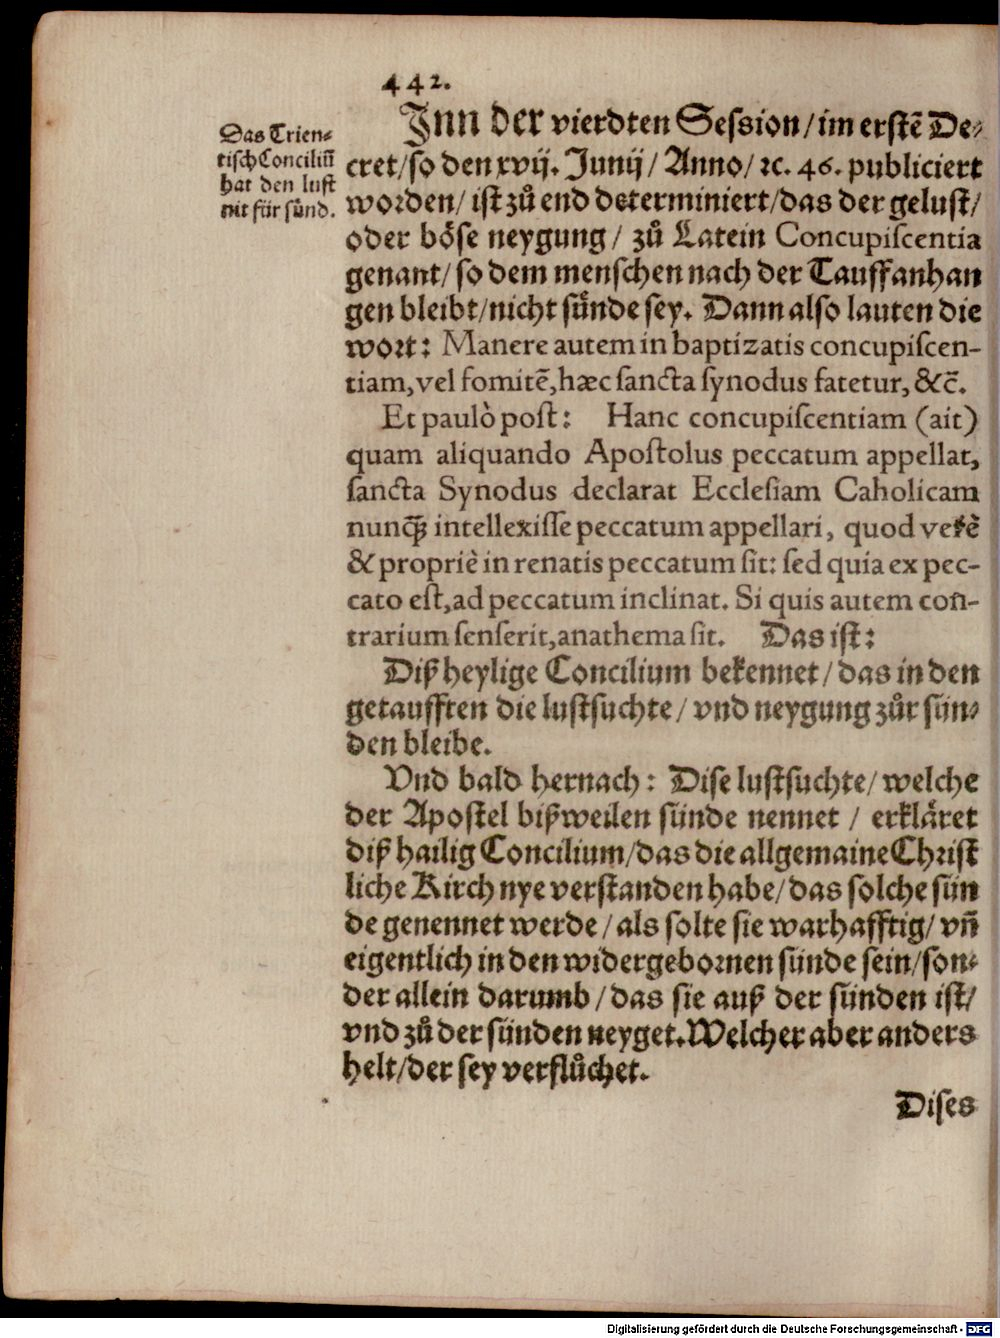 442.
Das Trien⸗
tisch Conciliū
hat den lust
nit für sünd.
Inn der vierdten Session/im erstē De⸗
cret/so den xvij. Junij/ Anno/ ꝛc. 46. publiciert
worden/ ist zů end determiniert/das der gelust/
oder böse neygung/ zů Latein Concupiſcentia
genant/ so dem menschen nach der Tauff anhan
gen bleibt/nicht sünde sey. Dann also lauten die
wort: Manere autem in baptizatis concupiſcen-
tiam, vel fomitē, hæc ſancta ſynodus fatetur, &c̄.
Et paulò poſt: Hanc concupiſcentiam (ait)
quam aliquando Apoſtolus peccatum appellat,
ſancta Synodus declarat Eccleſiam Caholicam
nunq̃ꝫ intellexiſſe peccatum appellari, quod verè
& propriè in renatis peccatum ſit: ſed quia ex pec-
cato eſt, ad peccatum inclinat. Si quis autem con-
trarium ſenſerit, anathema ſit. Das ist:
Diß heylige Concilium bekennet/ das in den
getaufften die lustsuchte/ vnd neygung zůr sün⸗
den bleibe.
Vnd bald hernach: Dise lustsuchte/ welche
der Apostel bißweilen sünde nennet/ erkläret
diß hailig Concilium/das die allgemaine Christ
liche Kirch nye verstanden habe/ das solche sün
de genennet werde/ als solte sie warhafftig/ vñ
eigentlich in den widergebornen sünde sein/son⸗
der allein darumb/ das sie auß der sünden ist/
vnd zů der sünden neyget. Welcher aber anders
helt/der sey verflůchet.
Dises
Digitalisierung gefördert durch die Deutsche Forschungsgemeinschaft - DFG